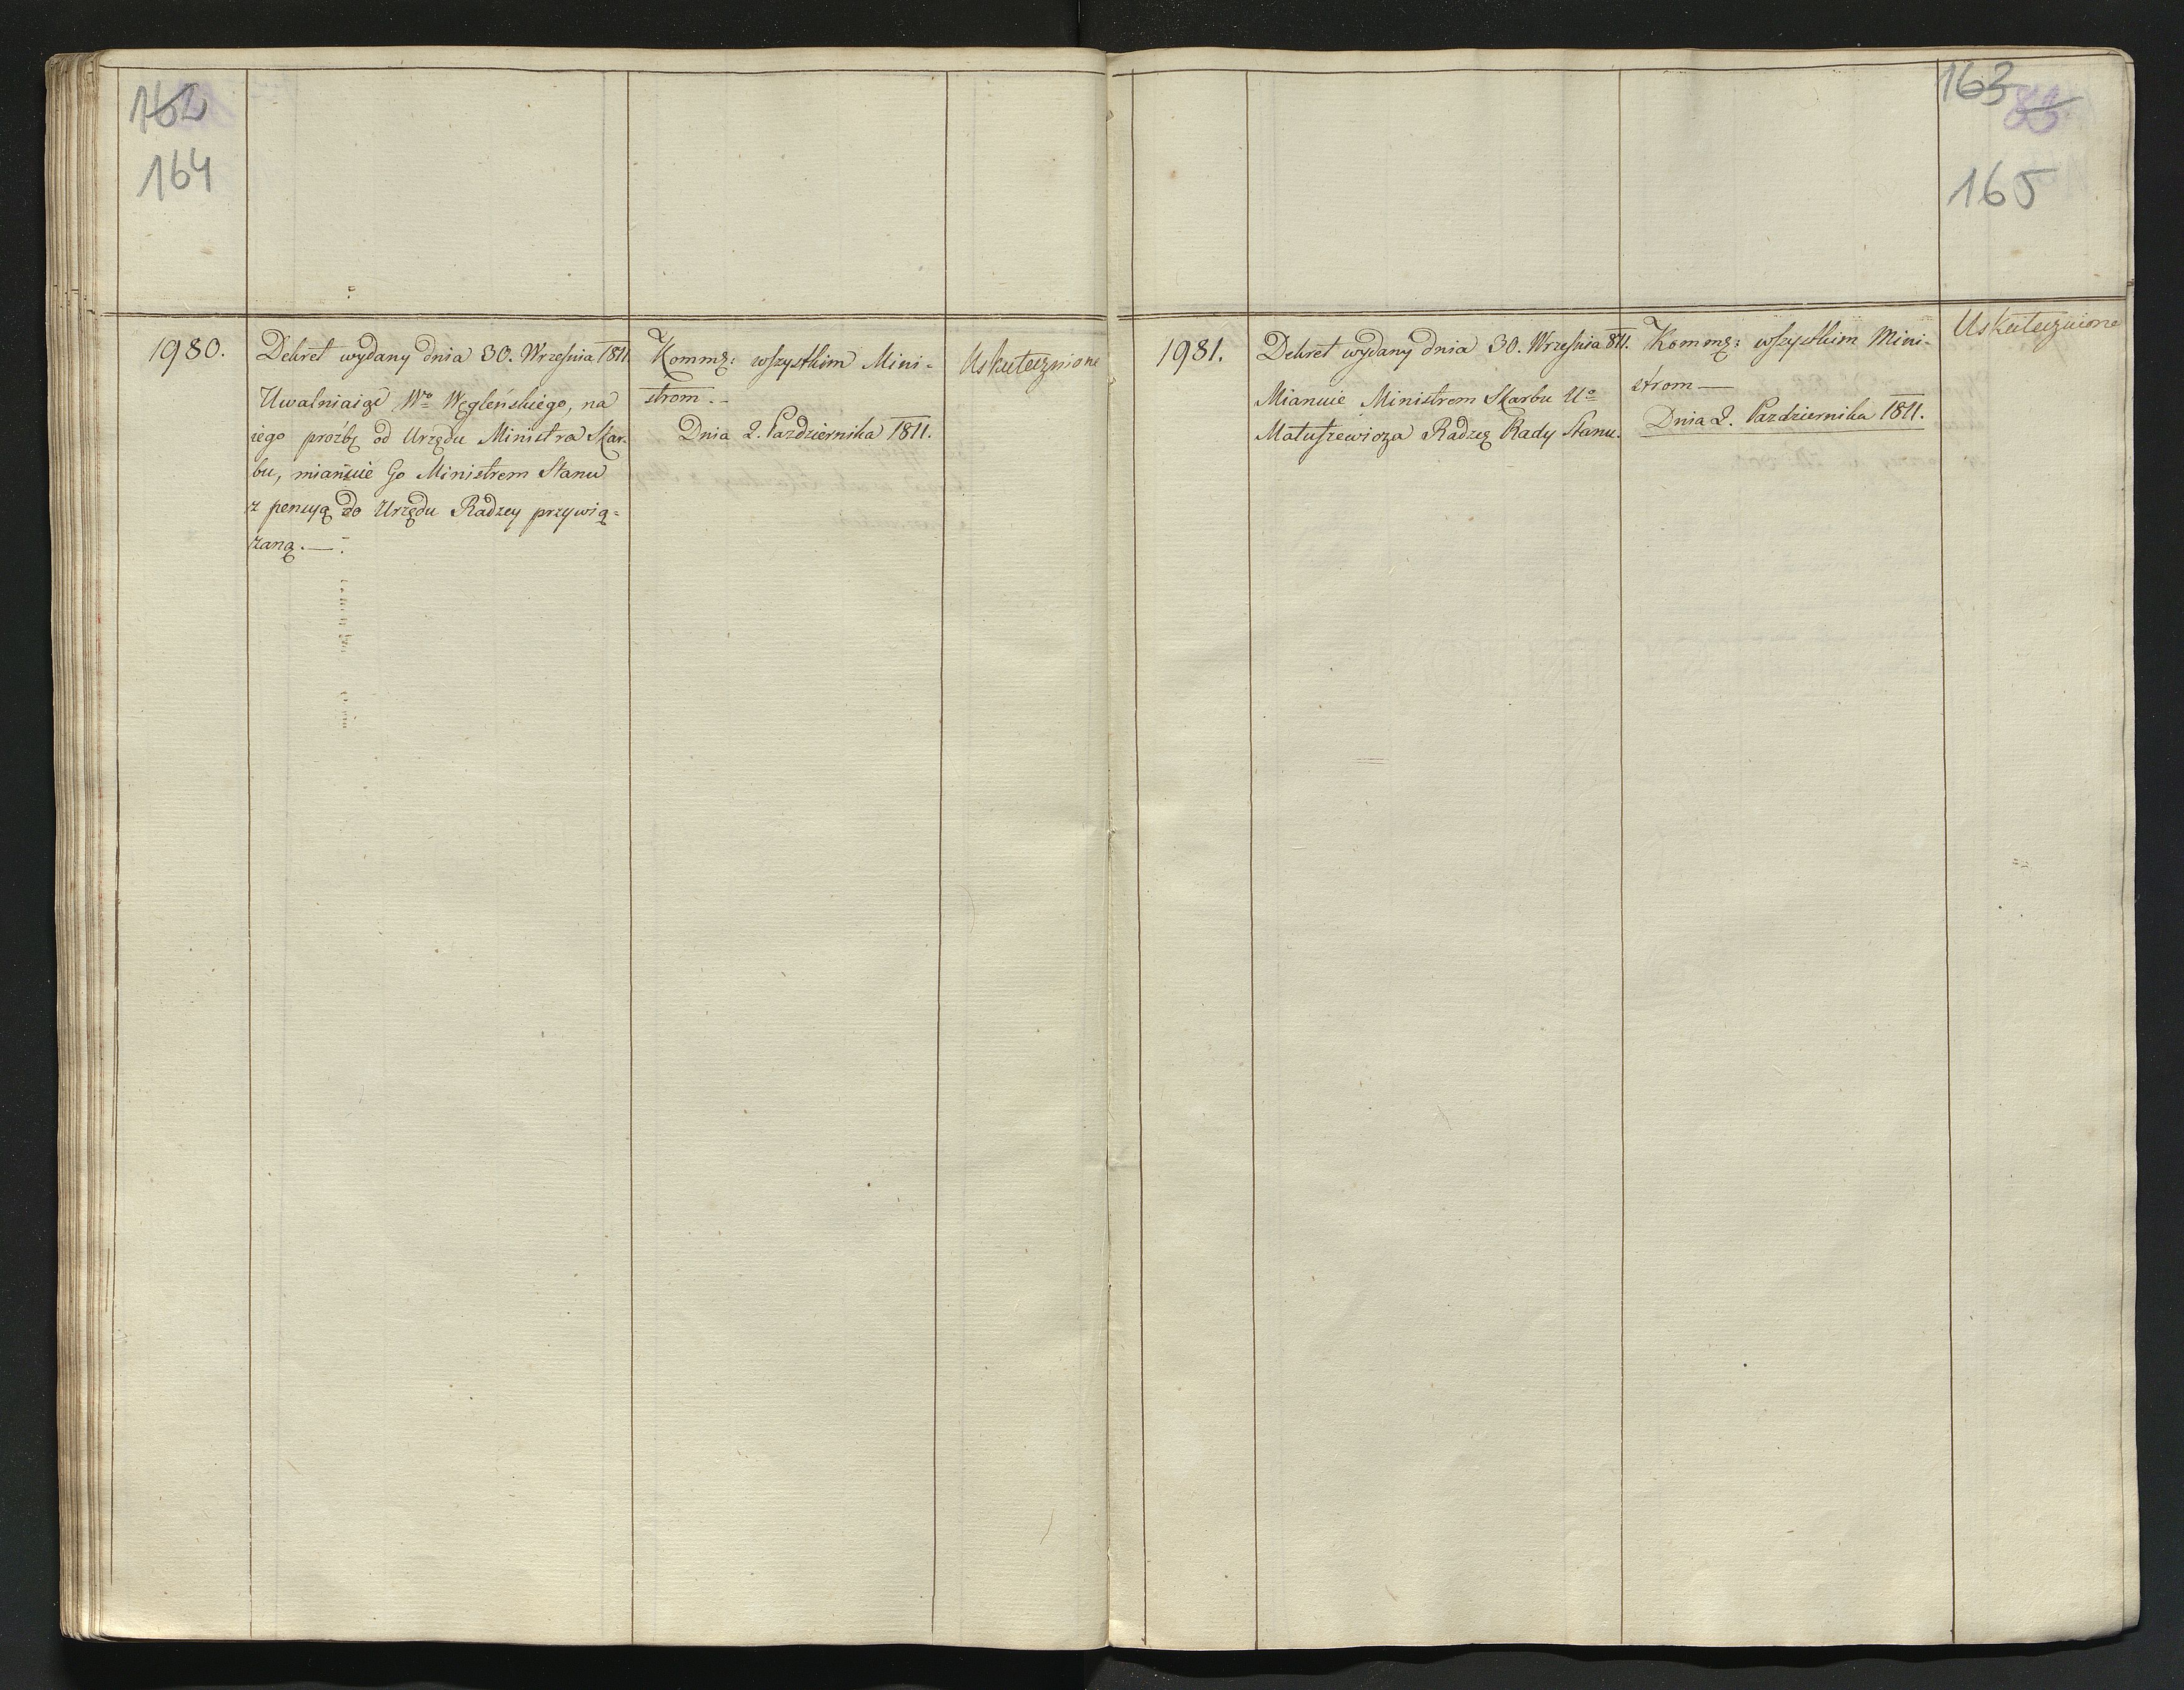 162
164
1980.
Dekret wydany dnia 30. Września 1811.
Uwalniaiąc Wo Węgleńskiego, na
iego proźbę od Urzędu Ministra Skar-
bu, mianuie Go Ministrem Stanu
z pensyą do Urzędu Radzcy przywią=
zaną. —
Kommę: wszystkim Mini-
strom. -
Dnia 2. Października 1811.
Uskutecznione
163
165
1981.
Dekret wydany dnia 30. Września 811.
Mianuie Ministrem Skarbu Uo
Matuszewicza Radzcę Rady Stanu.
Kommę: wszystkim Mini-
strom —
Dnia 2. Października 1811.
Uskutecznione